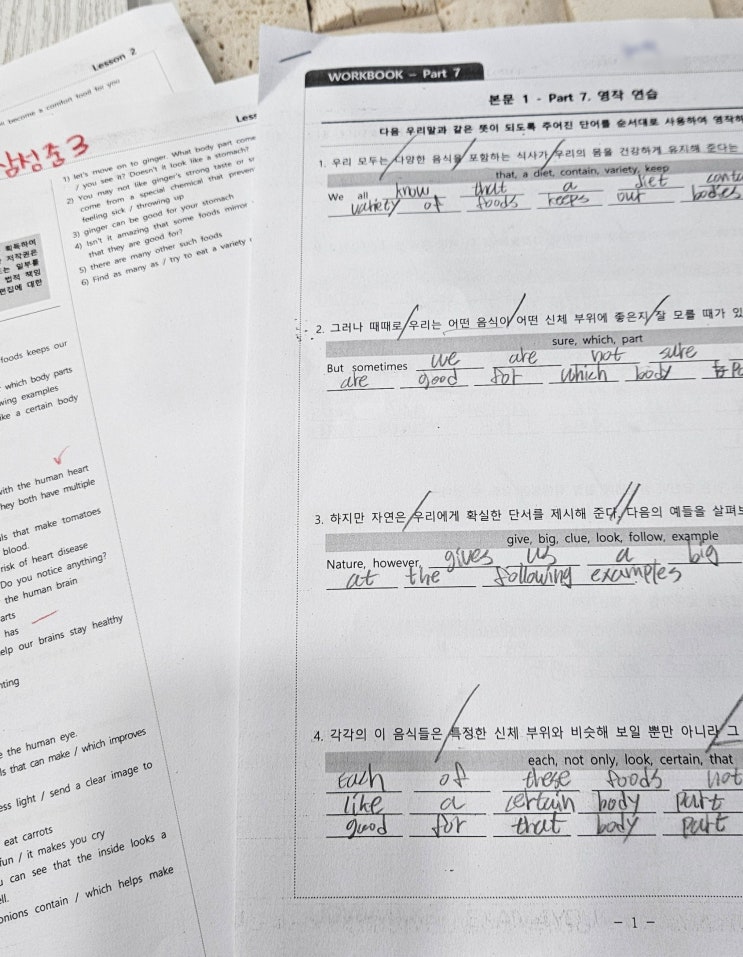 Lesson 2
become a comfort food for you
삼성중3
1) let's move on to ginger. What body part come
/ you see it? Doesn't it look like a stomach?
2) You may not like ginger's strong taste or
come from a special chemical that preven
feeling sick / throwing up
3) ginger can be good for your stomach
4) Isn't it amazing that some foods mirror
that they are good for?
5) there are many other such foods
6) Find as many as / try to eat a variety
획득하여
저작권은
는 일부를
법적 책임
편집에 대한
foods keeps our
which body parts
wing examples
ike a certain body
with the human heart
hey both have multiple
ls that make tomatoes
blood.
risk of heart disease
Do you notice anything?
the human brain
arts
has
elp our brains stay healthy
nting
the human eye.
ls that can make / which improves
ess light / send a clear image to
eat carrots
fun / it makes you cry
can see that the inside looks a
ell.
onions contain / which helps make
WORKBOOK - Part 7
본문 1 - Part 7. 영작 연습
다음 우리말과 같은 뜻이 되도록 주어진 단어를 순서대로 사용하여 영작하
1. 우리 모두는 다양한 음식을 포함하는 식사가 우리의 몸을 건강하게 유지해 준다는
that, a diet, contain, variety, keep
We all know that a diet conta
variety of foods keeps our bodies
2. 그러나 때때로 우리는 어떤 음식이 어떤 신체 부위에 좋은지 잘 모를 때가 있
sure, which, part
But sometimes we are not sure
are good for which body
3. 하지만 자연은 우리에게 확실한 단서를 제시해 준다. 다음의 예들을 살펴보
give, big, clue, look, follow, example
Nature, however, gives us a big
at the following examples
4. 각각의 이 음식들은 특정한 신체 부위와 비슷해 보일 뿐만 아니라 그
each, not only, look, certain, that
Each of these foods not
like a certain body part
good for that body part
- 1 -